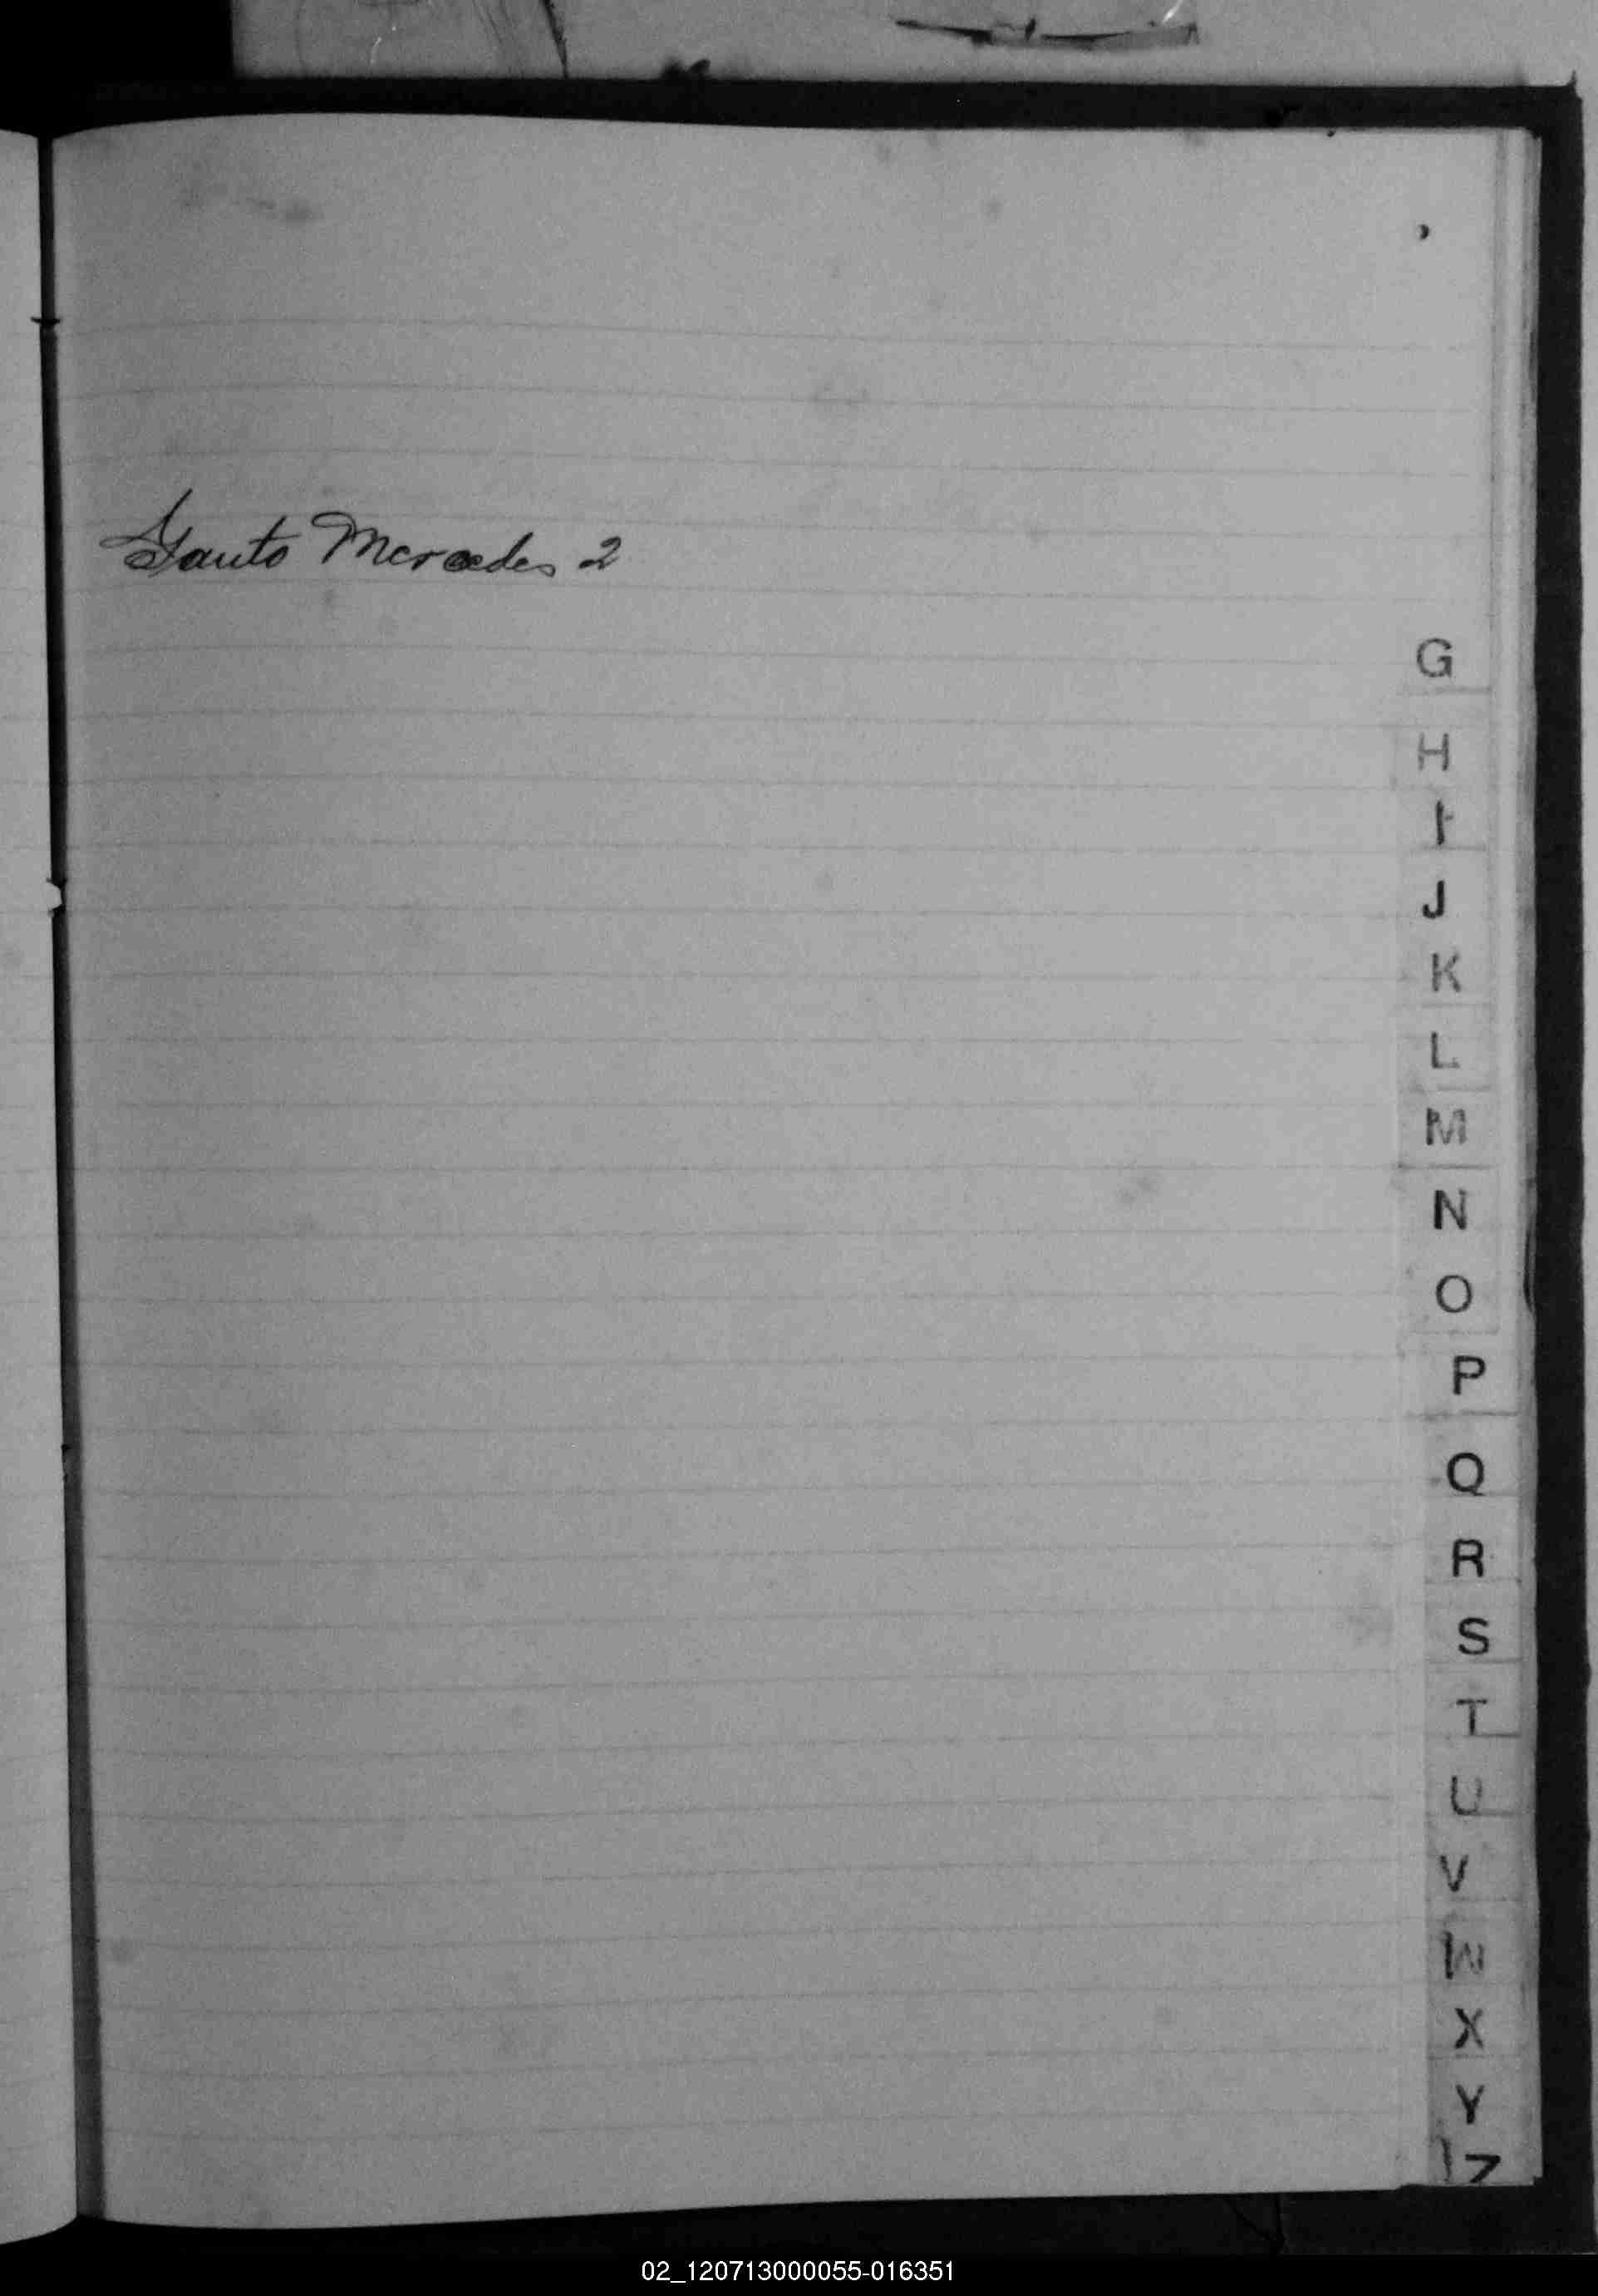 Gauto Mercedes 2
G
H
I
J
K
L
M
N
O
P
Q
R
S
T
U
V
W
X
Y
Z
02_120713000055-016351